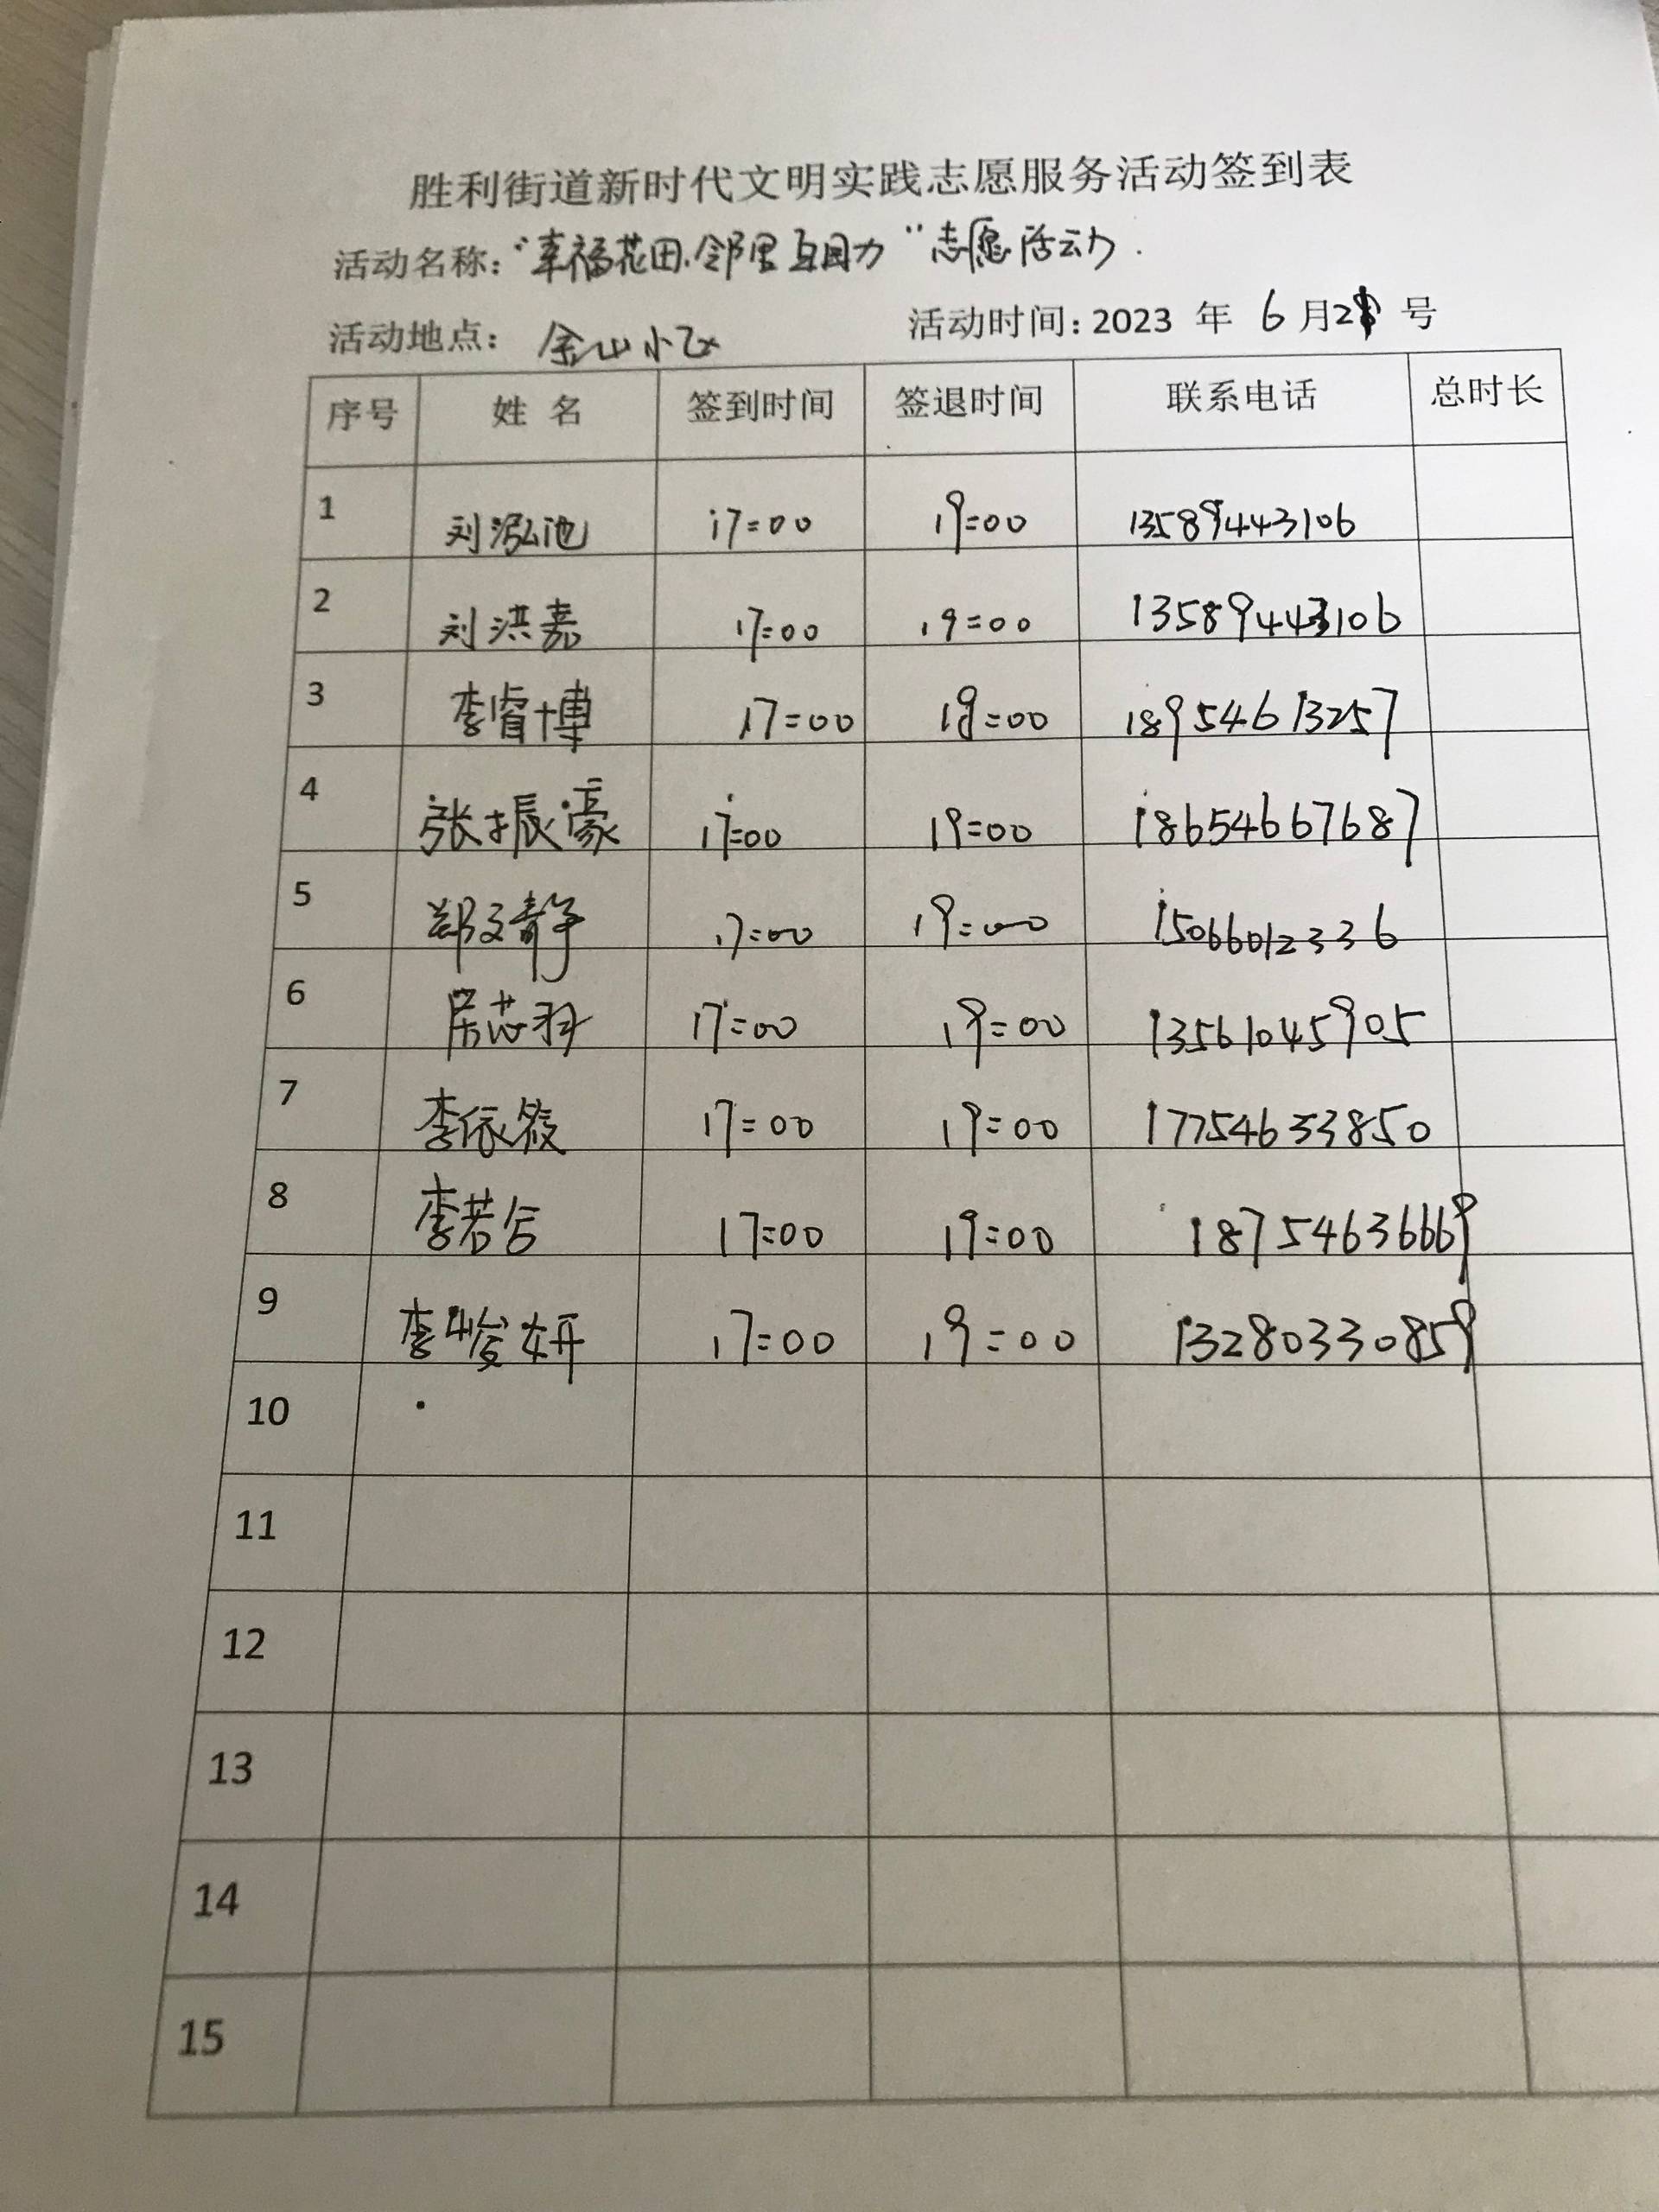 胜利街道新时代文明实践志愿服务活动签到表
活动名称："幸福花田.邻里互助"志愿活动.
活动地点： 金山小区 活动时间：2023 年 6 月 号
序号 姓 名 签到时间 签退时间 联系电话 总时长
1 刘泓池 17=00 19=00 13589443106
2 刘洪嘉 17=00 19=00 13589443106
3 李睿博 17=00 19=00 18954613257
4 张振豪 17=00 19=00 18654667687
5 郑文静 17=00 19=00 15066012336
6 17=00 19=00 13561045905
7 李依筱 17=00 19=00 17754633850
8 李若 17=00 19=00 18754636669
9 李峻妍 17=00 19=00 13280330859
10
11
12
13
14
15